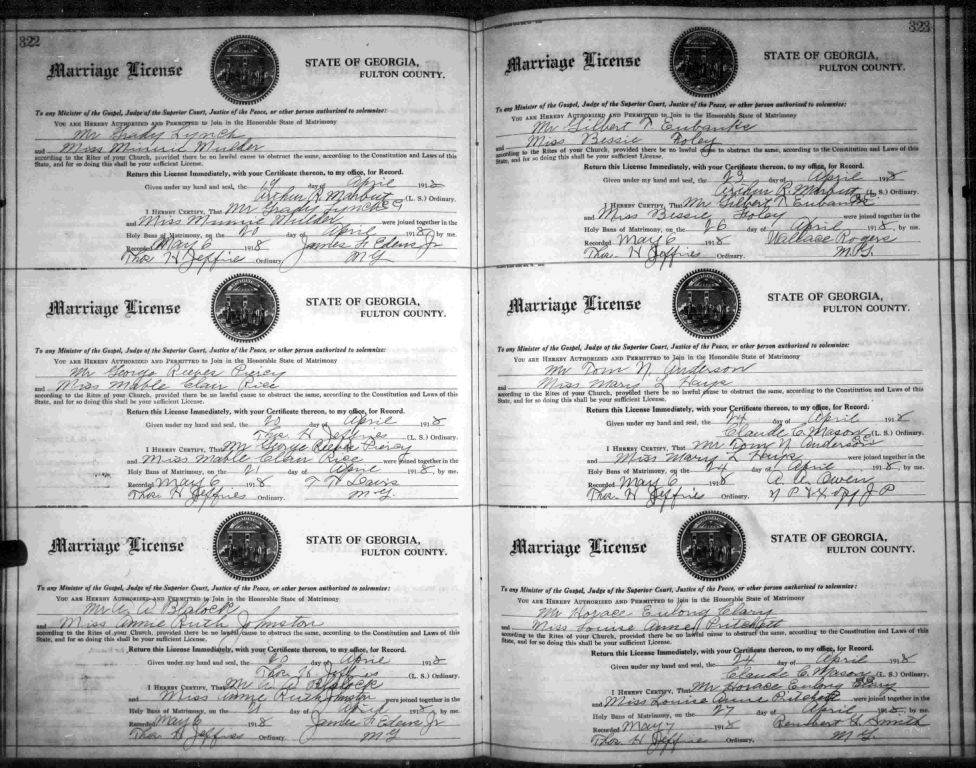 322
Marriage License
STATE OF GEORGIA,
FULTON COUNTY.
To any Minister of the Gospel, Judge of the Superior Court, Justice of the Peace, or other person authorized to solemnize:
YOU ARE HEREBY AUTHORIZED AND PERMITTED to Join in the Honorable State of Matrimony
Mr Grady Lynch
and Miss Minnie Mulder
according to the Rites of your Church, provided there be no lawful cause to obstruct the same, according to the Constitution and Laws of this
State, and for so doing this shall be your sufficient License.
Return this License Immediately, with your Certificate thereon, to my office, for Record.
Given under my hand and seal, the 19 day of April 1918
Arthur R Marbut (L. S.) Ordinary.
I HEREBY CERTIFY, That Mr Grady Lynch
and Miss Minnie Mulder were joined together in the
Holy Bans of Matrimony, on the 20 day of April 1918, by me.
Recorded May 6 1918 James F. Edens Jr
Thos H Jeffries Ordinary. M G
Marriage License
STATE OF GEORGIA,
FULTON COUNTY.
To any Minister of the Gospel, Judge of the Superior Court, Justice of the Peace, or other person authorized to solemnize:
YOU ARE HEREBY AUTHORIZED AND PERMITTED to Join in the Honorable State of Matrimony
Mr George Reeves Piercy
and Miss Mable Clair Rice
according to the Rites of your Church, provided there be no lawful cause to obstruct the same, according to the Constitution and Laws of this
State, and for so doing this shall be your sufficient License.
Return this License Immediately, with your Certificate thereon, to my office, for Record.
Given under my hand and seal, the 20 day of April 1918
Thos H Jeffries (L. S.) Ordinary.
I HEREBY CERTIFY, That Mr George Reeves Piercy
and Miss Mable Clair Rice were joined together in the
Holy Bans of Matrimony, on the 21 day of April 1918, by me.
Recorded May 6 1918 Davis
Thos H Jeffries Ordinary. M G.
Marriage License
STATE OF GEORGIA,
FULTON COUNTY.
To any Minister of the Gospel, Judge of the Superior Court, Justice of the Peace, or other person authorized to solemnize:
YOU ARE HEREBY AUTHORIZED AND PERMITTED to Join in the Honorable State of Matrimony
Mr A. W Blalock
and Miss Annie Ruth Johnston
according to the Rites of your Church, provided there be no lawful cause to obstruct the same, according to the Constitution and Laws of this
State, and for so doing this shall be your sufficient License.
Return this License Immediately, with your Certificate thereon, to my office, for Record.
Given under my hand and seal, the 20 day of April 1918
Thos H Jeffries (L. S.) Ordinary.
I HEREBY CERTIFY, That Mr A. W Blalock
and Miss Annie Ruth Johnston were joined together in the
Holy Bans of Matrimony, on the day of April 1918, by me.
Recorded May 6 1918 James F Edens Jr
Thos H Jeffries Ordinary. M G
323
Marriage License
STATE OF GEORGIA,
FULTON COUNTY.
To any Minister of the Gospel, Judge of the Superior Court, Justice of the Peace, or other person authorized to solemnize:
YOU ARE HEREBY AUTHORIZED AND PERMITTED to Join in the Honorable State of Matrimony
Mr Gilbert T. Eubanks
and Miss Bessie Foley
according to the Rites of your Church, provided there be no lawful cause to obstruct the same, according to the Constitution and Laws of this
State, and for so doing this shall be your sufficient License.
Return this License Immediately, with your Certificate thereon, to my office, for Record.
Given under my hand and seal, the 23 day of April 1918
Arthur R Marbut (L. S.) Ordinary.
I HEREBY CERTIFY, That Mr Gilbert T Eubanks
and Miss Bessie Foley were joined together in the
Holy Bans of Matrimony, on the 26 day of April 1918, by me.
Recorded May 6 1918 Wallace Rogers
Thos H Jeffries Ordinary. M.G.
Marriage License
STATE OF GEORGIA,
FULTON COUNTY.
To any Minister of the Gospel, Judge of the Superior Court, Justice of the Peace, or other person authorized to solemnize:
YOU ARE HEREBY AUTHORIZED AND PERMITTED to Join in the Honorable State of Matrimony
Mr Tom N. Anderson
and Miss Mary L Hays
according to the Rites of your Church, provided there be no lawful cause to obstruct the same, according to the Constitution and Laws of this
State, and for so doing this shall be your sufficient License.
Return this License Immediately, with your Certificate thereon, to my office, for Record.
Given under my hand and seal, the 24 day of April 1918
Claude C. Mason (L. S.) Ordinary.
I HEREBY CERTIFY, That Mr Tom N Anderson
and Miss Mary L Hays were joined together in the
Holy Bans of Matrimony, on the 24 day of April 1918, by me.
Recorded May 6 1918 A. A. Owen
Thos H Jeffries Ordinary. N P & J P
Marriage License
STATE OF GEORGIA,
FULTON COUNTY.
To any Minister of the Gospel, Judge of the Superior Court, Justice of the Peace, or other person authorized to solemnize:
YOU ARE HEREBY AUTHORIZED AND PERMITTED to Join in the Honorable State of Matrimony
Mr Horace Eulong Clary
and Miss Louise Anne Pritchett
according to the Rites of your Church, provided there be no lawful cause to obstruct the same, according to the Constitution and Laws of this
State, and for so doing this shall be your sufficient License.
Return this License Immediately, with your Certificate thereon, to my office, for Record.
Given under my hand and seal, the 24 day of April 1918
Claude C. Mason (L. S.) Ordinary.
I HEREBY CERTIFY, That Mr Horace Eulong Clary
and Miss Louise Anne Pritchett were joined together in the
Holy Bans of Matrimony, on the 27 day of April 1918, by me.
Recorded May 7 1918 Rembert G. Smith
Thos H Jeffries Ordinary. M G.